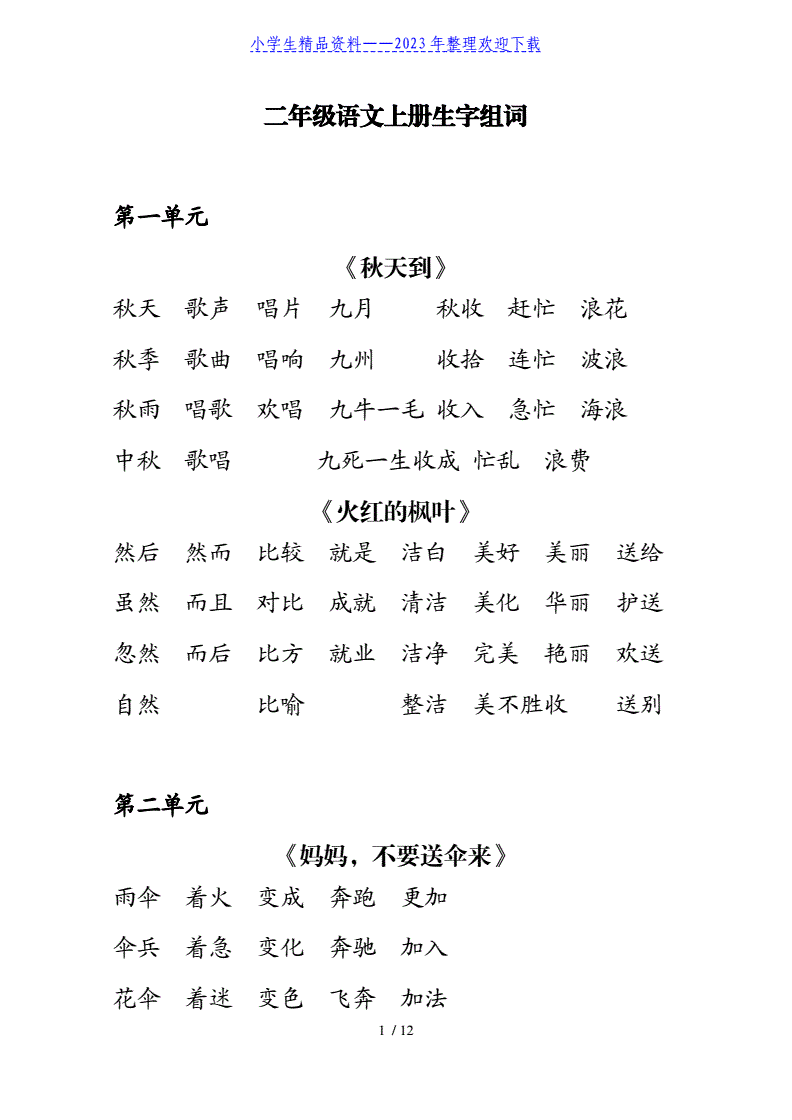 小学生精品资料——2023年整理欢迎下载
二年级语文上册生字组词
第一单元
《秋天到》
秋天 歌声 唱片 九月 秋收 赶忙 浪花
秋季 歌曲 唱响 九州 收拾 连忙 波浪
秋雨 唱歌 欢唱 九牛一毛 收入 急忙 海浪
中秋 歌唱 九死一生收成 忙乱 浪费
《火红的枫叶》
然后 然而 比较 就是 洁白 美好 美丽 送给
虽然 而且 对比 成就 清洁 美化 华丽 护送
忽然 而后 比方 就业 洁净 完美 艳丽 欢送
自然 比喻 整洁 美不胜收 送别
第二单元
《妈妈，不要送伞来》
雨伞 着火 变成 奔跑 更加
伞兵 着急 变化 奔驰 加入
花伞 着迷 变色 飞奔 加法
1 / 12